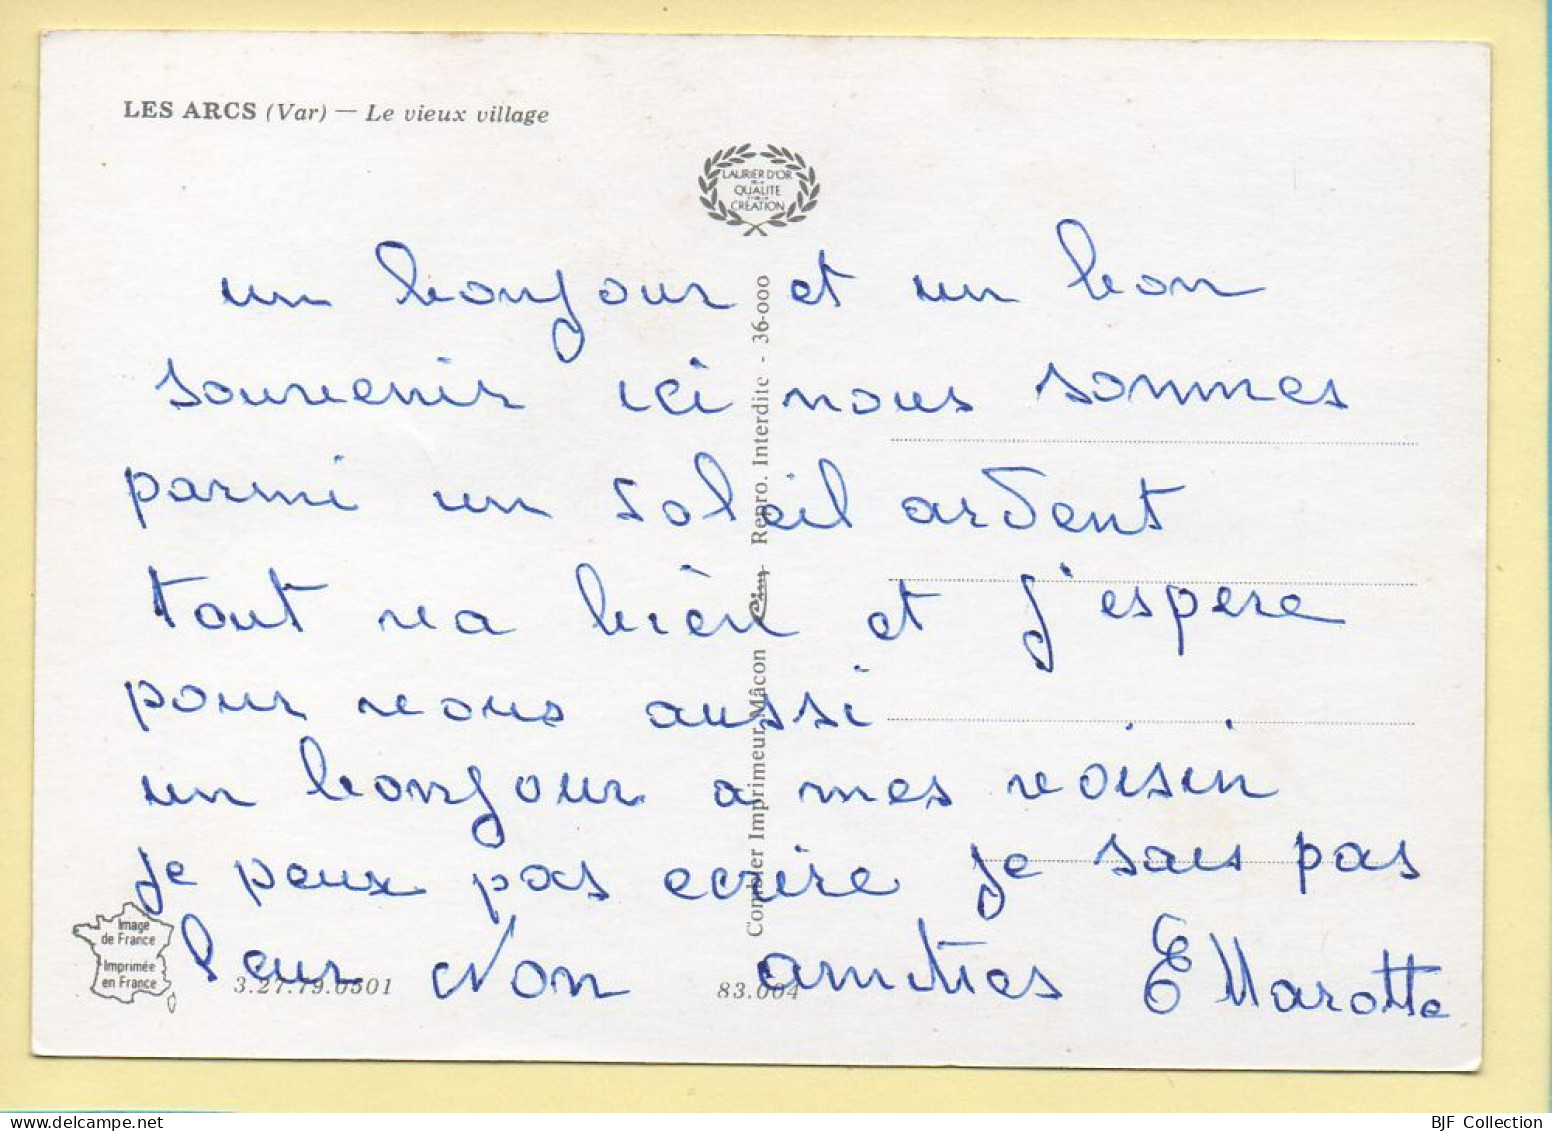 LES ARCS (Var) — Le vieux village
LAURIER D'OR
DE LA
QUALITÉ
ET DE LA
CRÉATION
un bonjour et un bon
souvenir ici nous sommes
parmi un soleil ardent
tout va bien et j'espere
pour vous aussi
un bonjour a mes voisin
je peux pas ecrire je sais pas
leur Non amities E Marotte
Combier Imprimeur Mâcon Cim Repro. Interdite - 36-000
Image
de France
Imprimée
en France
3.27.79.0501
83.004
BJF Collection